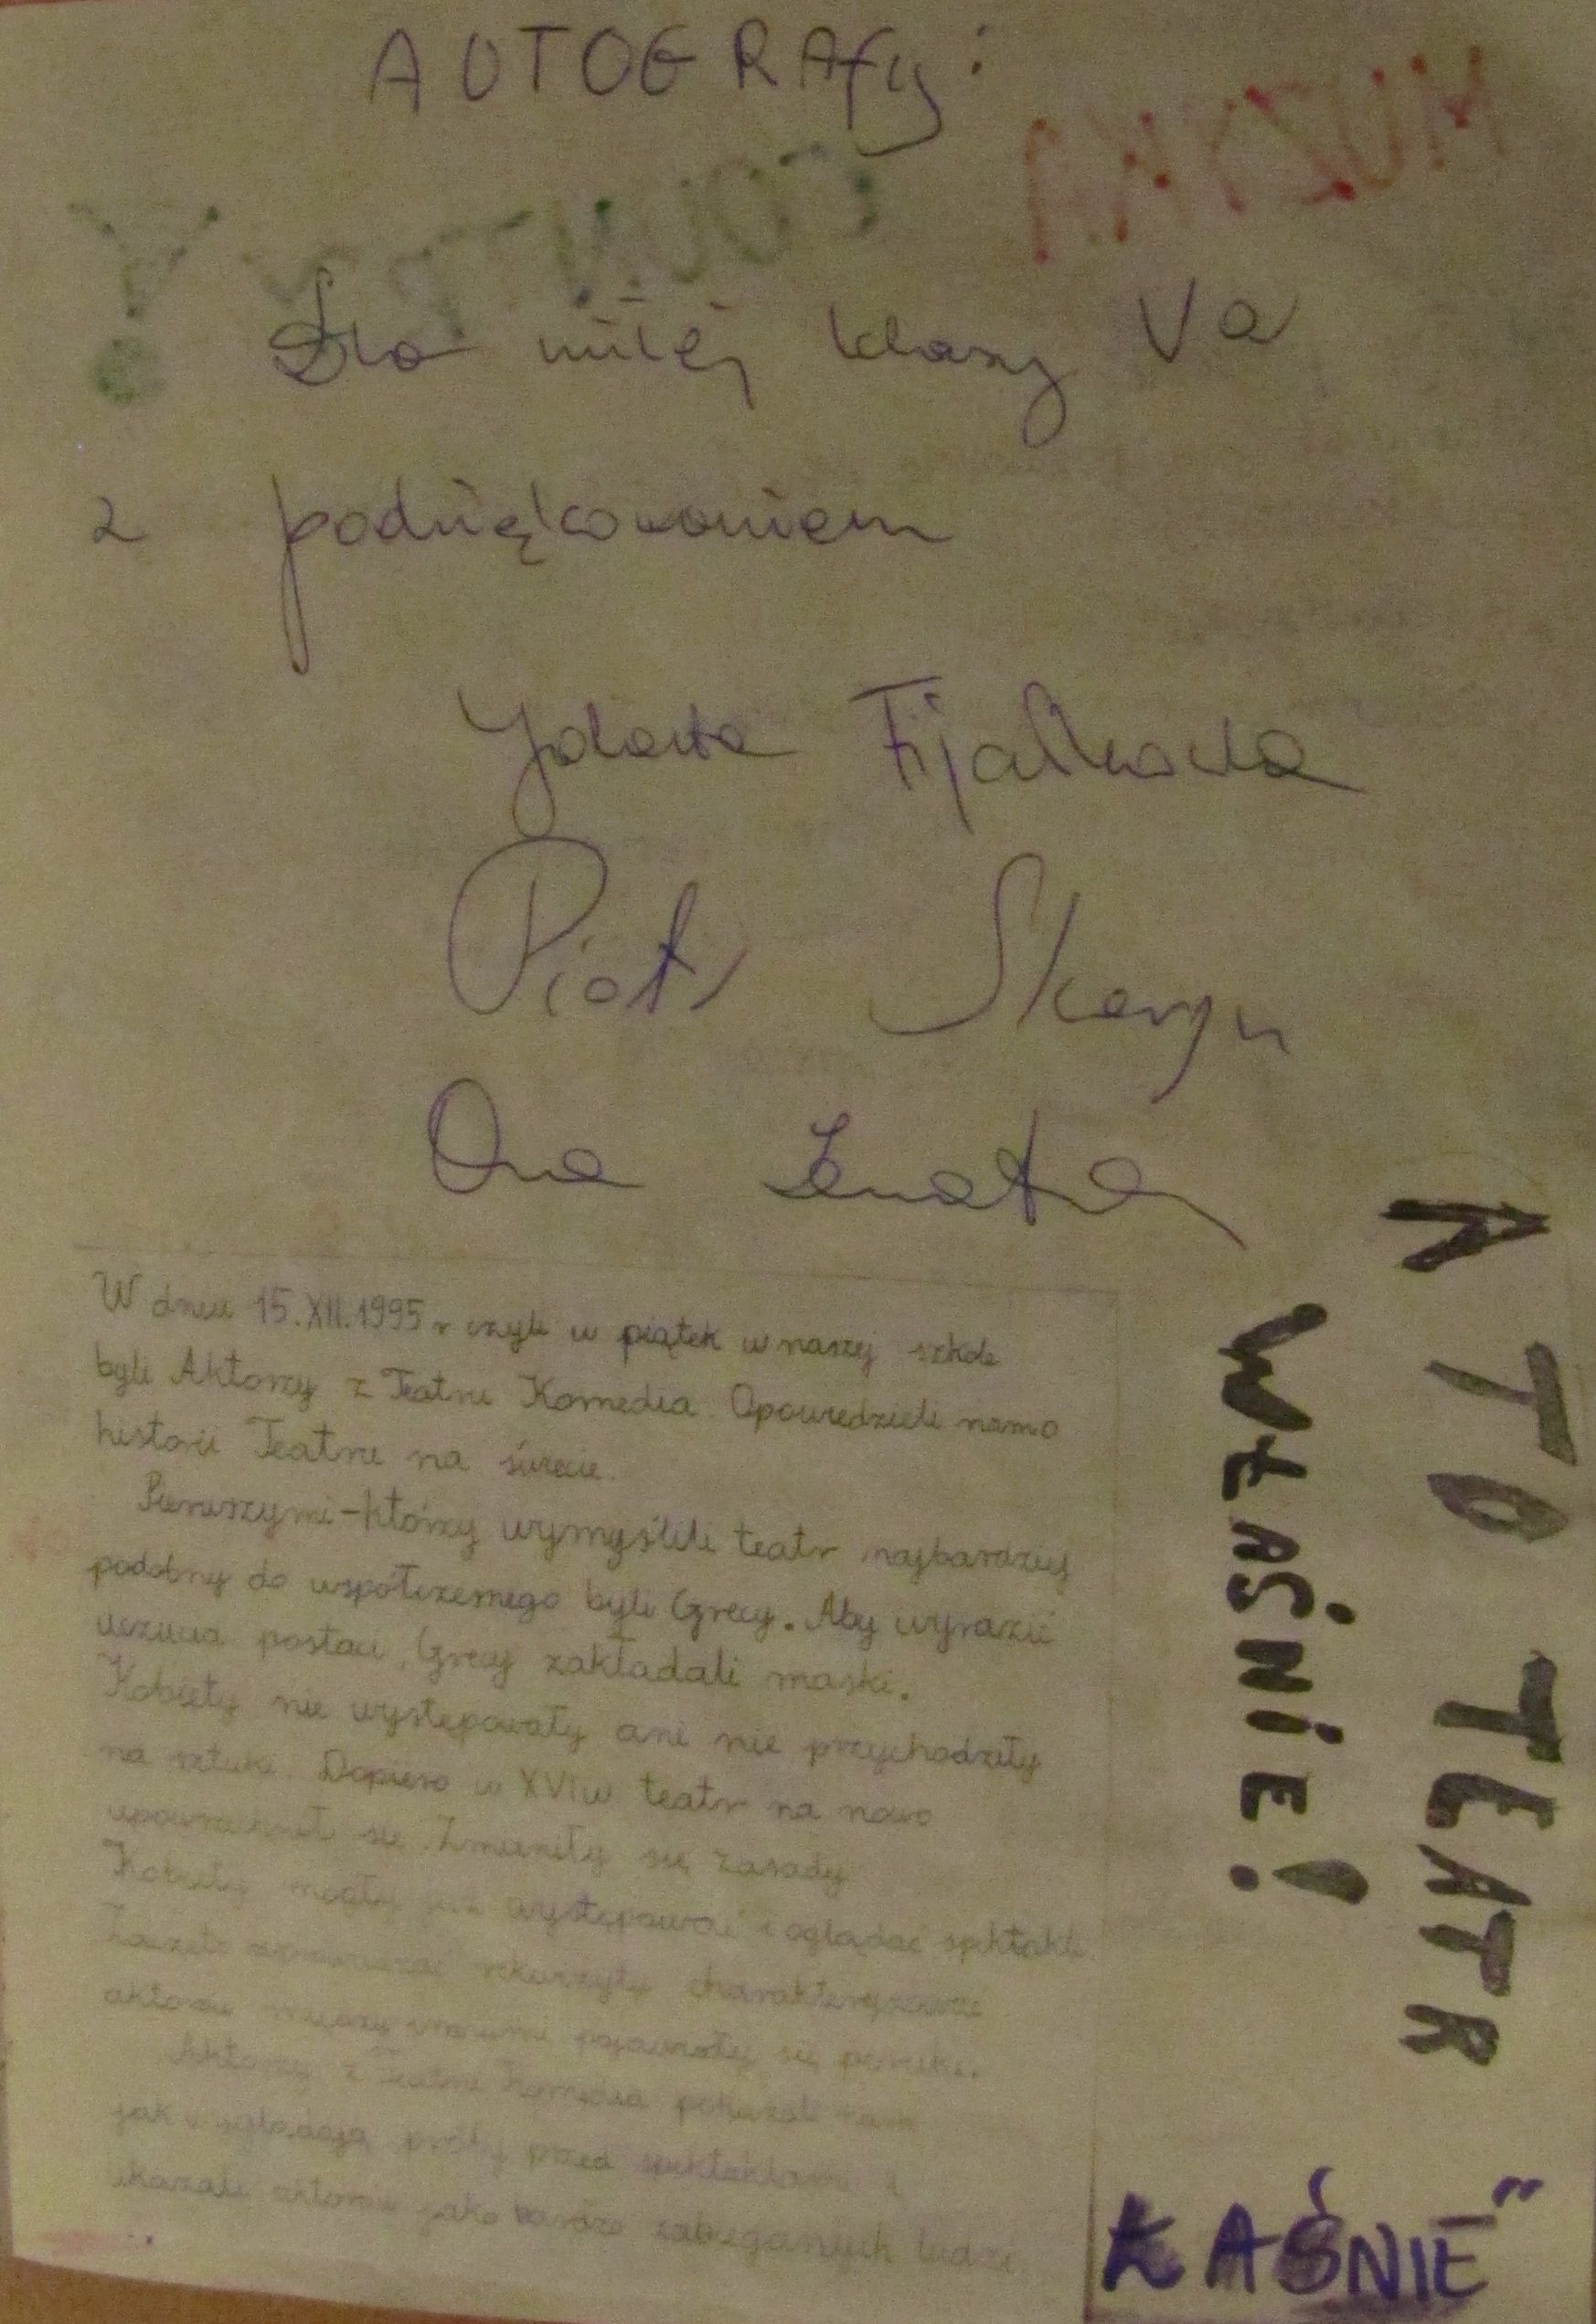 AUTOGRAfy:
MUZYKA COUNTRY
Dla miłej klasy Va
z podziękowaniem
Jolanta Fijałkowska
Piotr Skarga
W dniu 15.XII.1995 r czyli w piątek w naszej szkole
byli Aktorzy z Teatru Komedia. Opowiedzieli namo
historii Teatru na świecie.
Pierwszymi-którzy wymyślili teatr najbardziej
podobny do współczesnego byli Grecy. Aby wyrazić
uczucia postaci, Grecy zakładali maski.
Kobiety nie występowały ani nie przychodziły
na sztuki. Dopiero w XVIw teatr na nowo
się. Zmieniły się zasady
Kobiety mogły już występować i oglądać spektakle.
Zaczęto rekwizyty charakteryzować
aktorów między innymi pojawiały się peruki.
Aktorzy z Teatru Komedia pokazali nam
jak wyglądają próby przed spektaklami i
ukazali aktorów jako bardzo zabieganych ludzi.
A TO TEATR
WŁAŚNIE!
ŁAŚNIE"